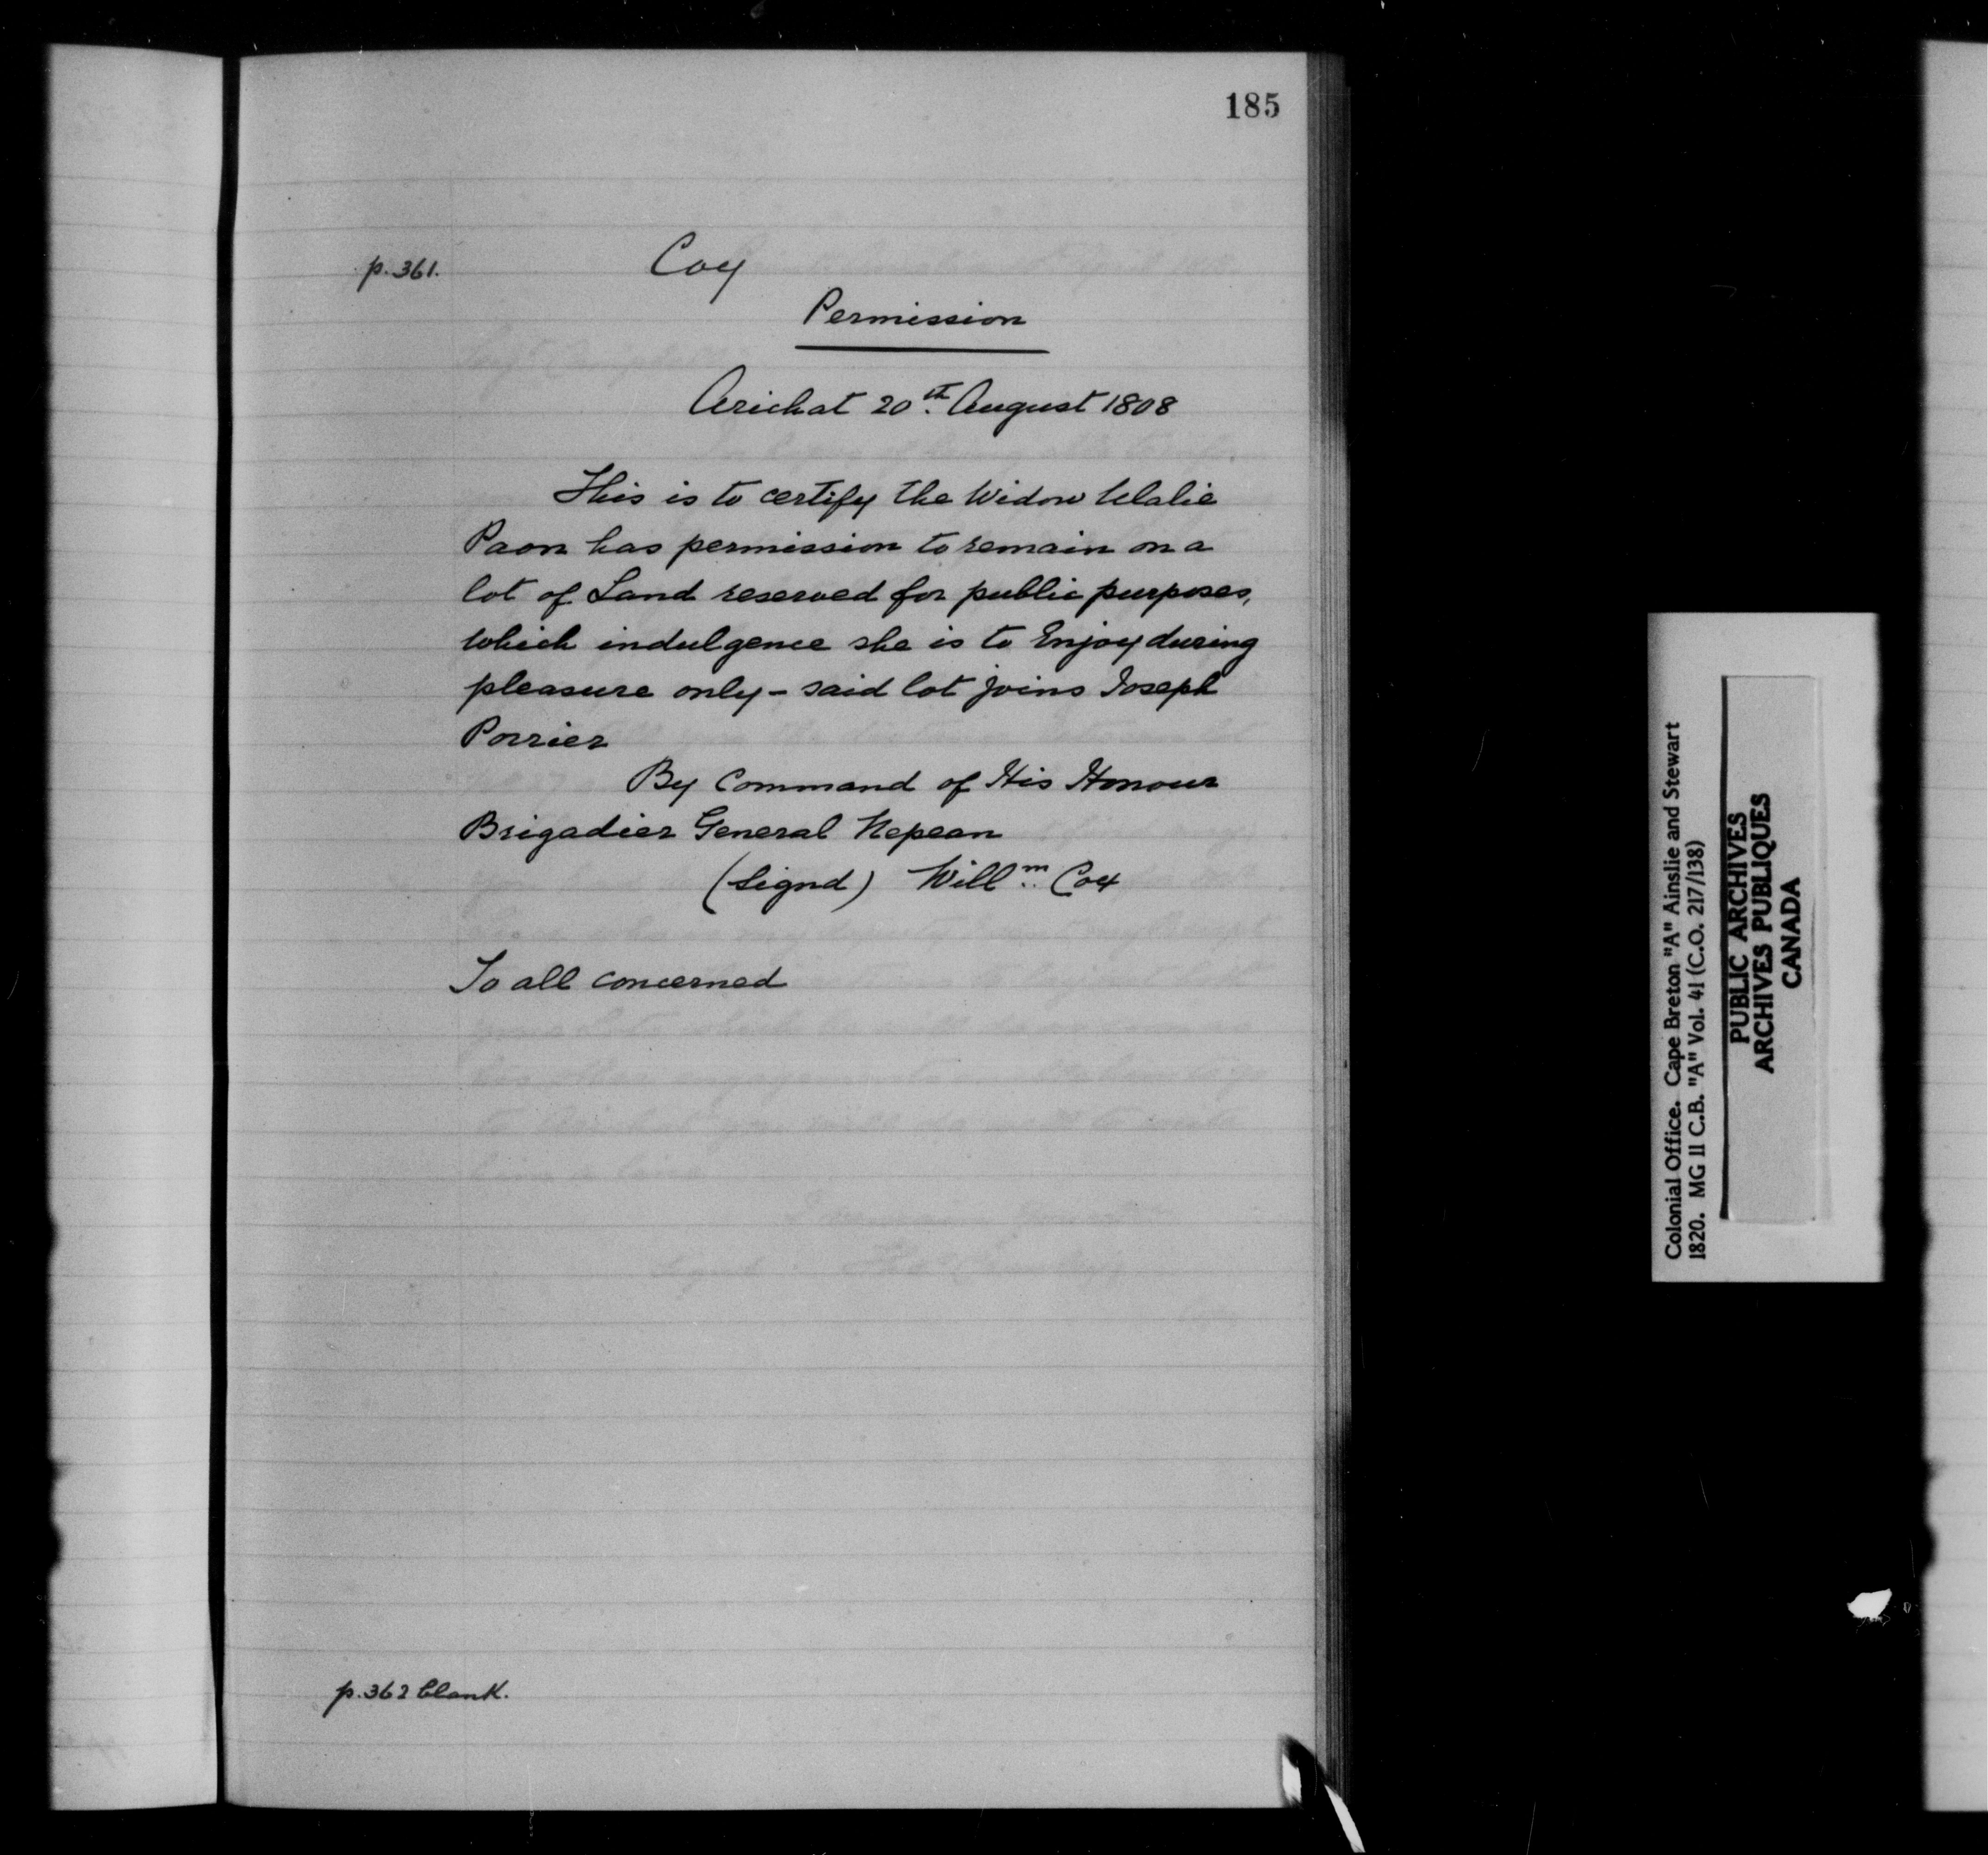 185
p. 361.
Coy
Permission
Arichat 20th. August 1808
This is to certify the Widow Ulalie
Paon has permission to remain on a
lot of Land reserved for public purposes,
which indulgence she is to Enjoy during
pleasure only - said lot joins Joseph
Porrier
By Command of His Honour
Brigadier General Nepean
(Signd) Willm. Cox
To all concerned
p. 362 blank.
Colonial Office. Cape Breton "A" Ainslie and Stewart
1820. MG 11 C.B. "A" Vol. 41 (C.O. 217/138)
PUBLIC ARCHIVES
ARCHIVES PUBLIQUES
CANADA